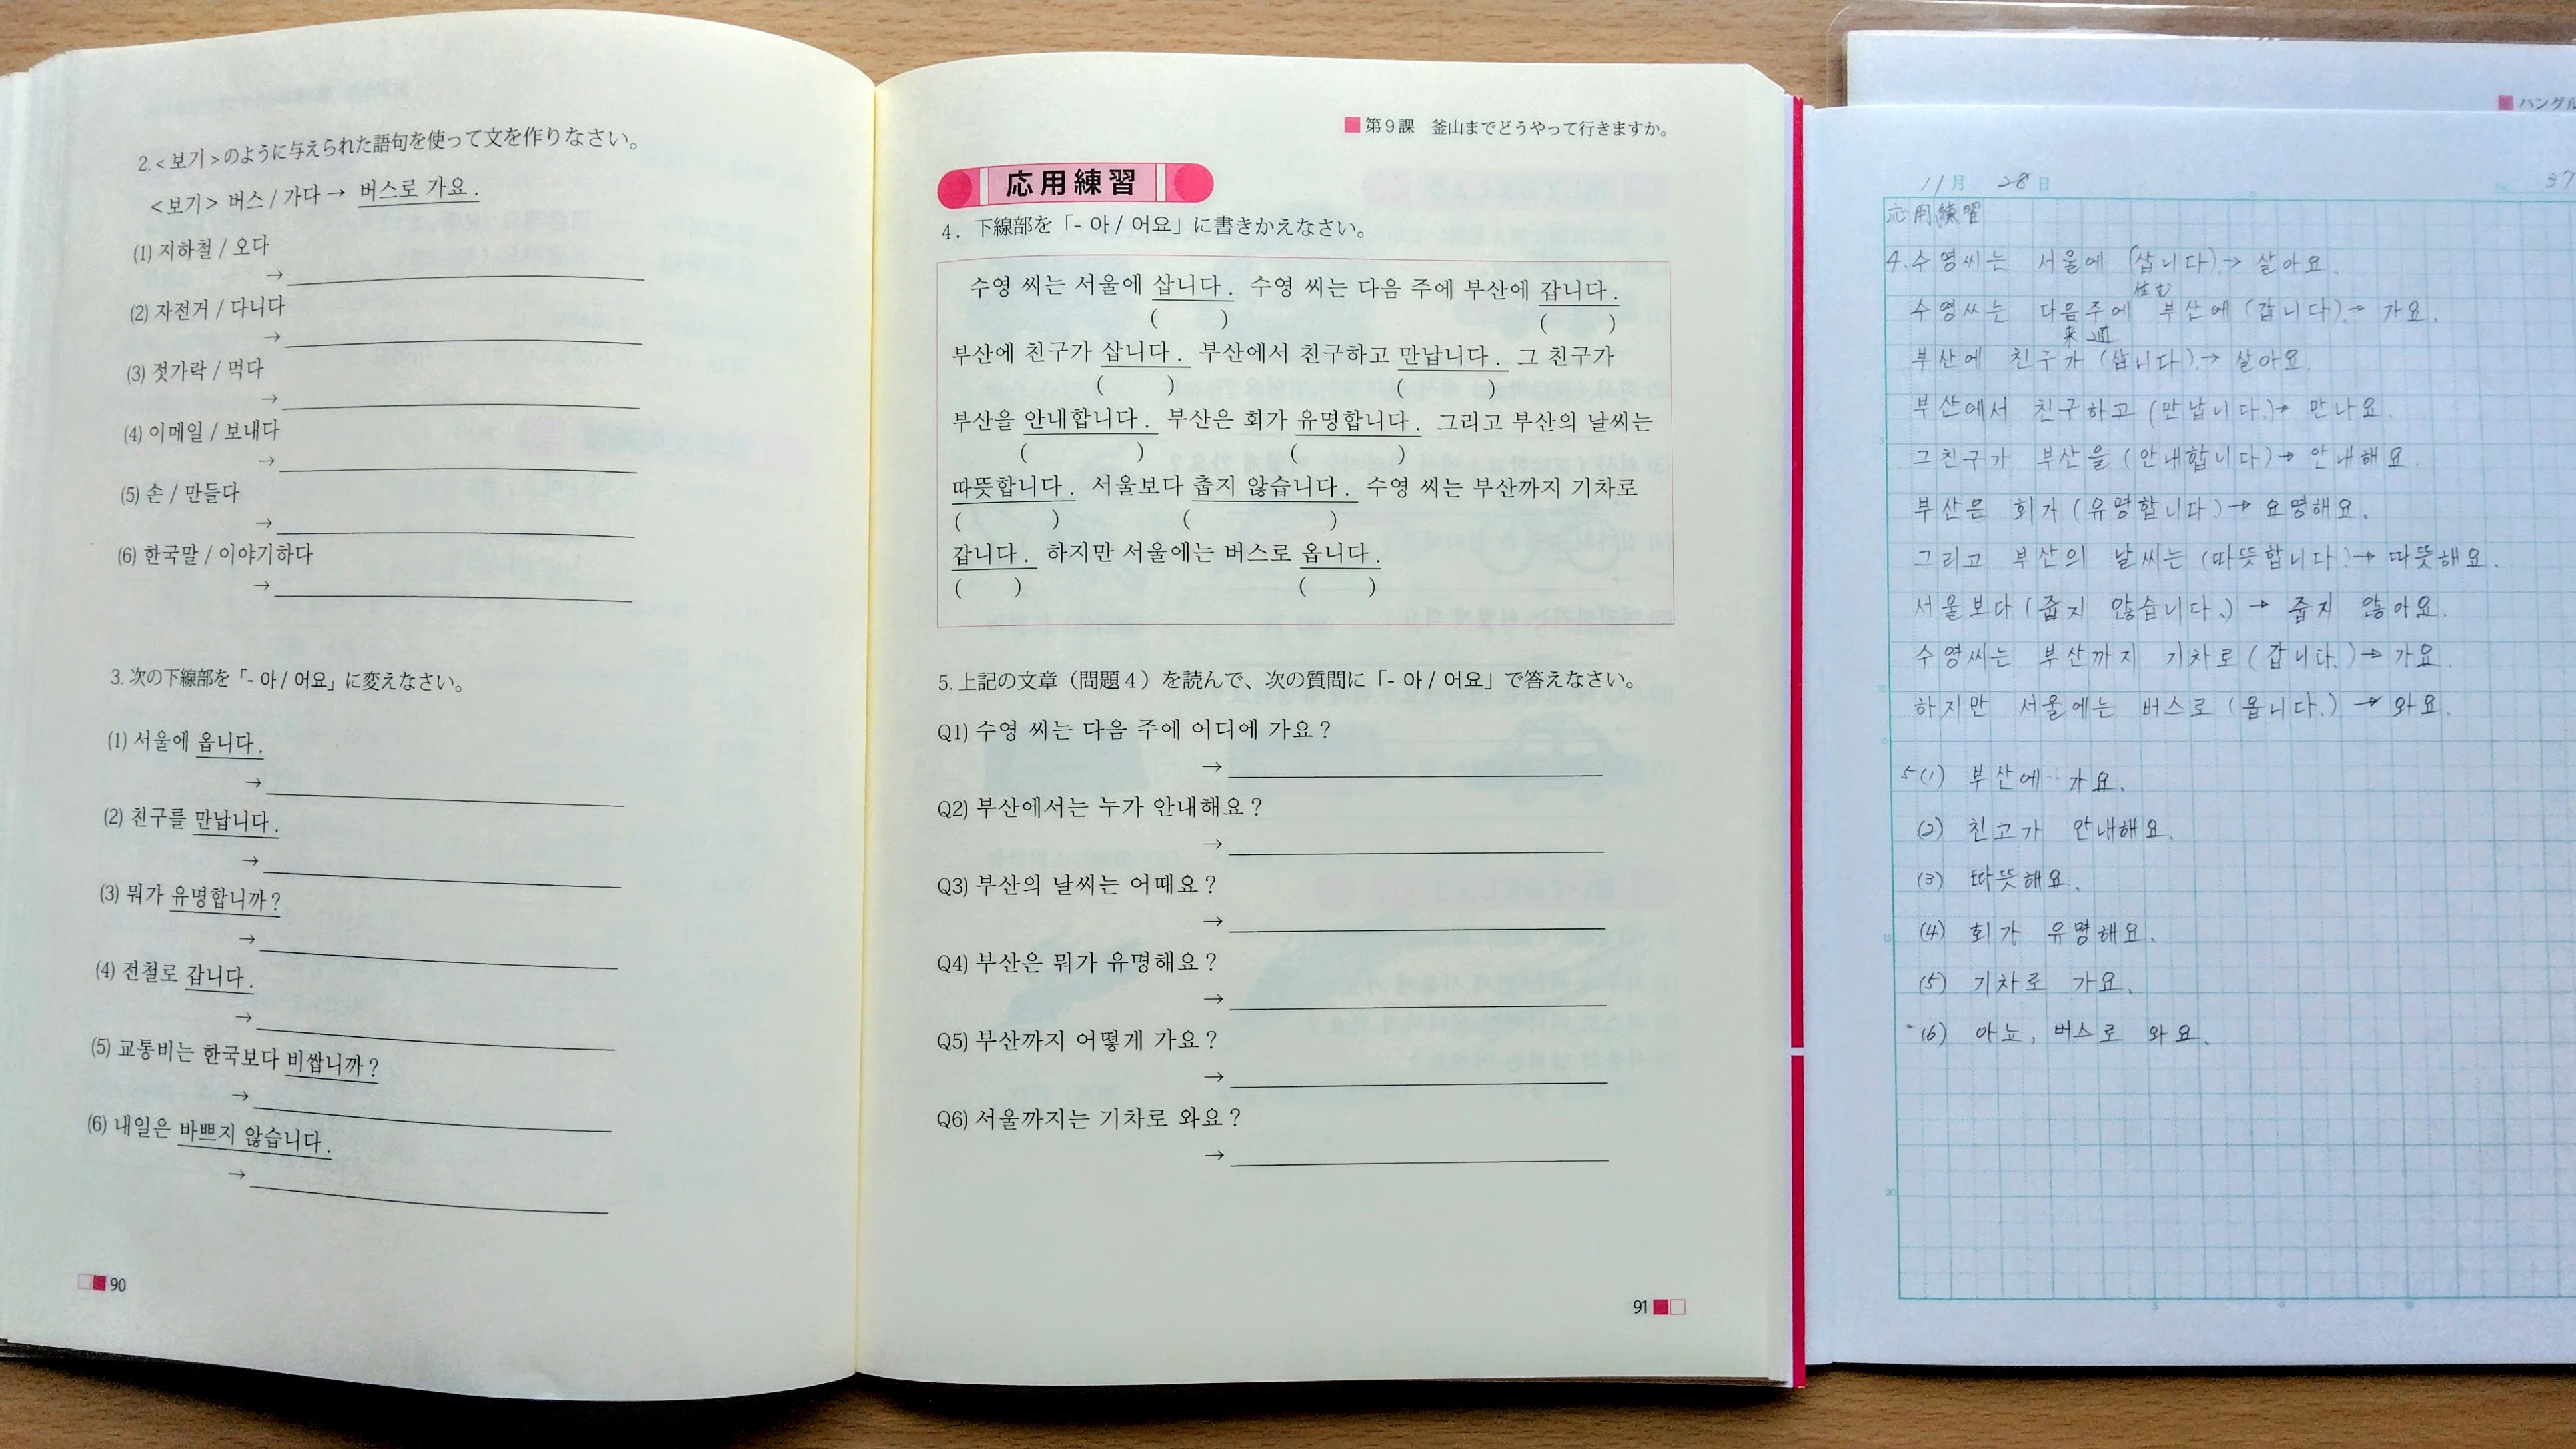 2. <보기>のように与えられた語句を使って文を作りなさい。
<보기> 버스 / 가다 → 버스로 가요.
(1) 지하철 / 오다
→
(2) 자전거 / 다니다
→
(3) 젓가락 / 먹다
→
(4) 이메일 / 보내다
→
(5) 손 / 만들다
→
(6) 한국말 / 이야기하다
→
3. 次の下線部を「- 아 / 어요」に変えなさい。
(1) 서울에 옵니다.
→
(2) 친구를 만납니다.
→
(3) 뭐가 유명합니까?
→
(4) 전철로 갑니다.
→
(5) 교통비는 한국보다 비쌉니까?
→
(6) 내일은 바쁘지 않습니다.
→
90
第9課 釜山までどうやって行きますか。
応用練習
4. 下線部を「- 아 / 어요」に書きかえなさい。
수영 씨는 서울에 삽니다. 수영 씨는 다음 주에 부산에 갑니다.
( ) ( )
부산에 친구가 삽니다. 부산에서 친구하고 만납니다. 그 친구가
( ) ( )
부산을 안내합니다. 부산은 회가 유명합니다. 그리고 부산의 날씨는
( ) ( )
따뜻합니다. 서울보다 춥지 않습니다. 수영 씨는 부산까지 기차로
( ) ( )
갑니다. 하지만 서울에는 버스로 옵니다.
( ) ( )
5. 上記の文章（問題4）を読んで、次の質問に「- 아 / 어요」で答えなさい。
Q1) 수영 씨는 다음 주에 어디에 가요?
→
Q2) 부산에서는 누가 안내해요?
→
Q3) 부산의 날씨는 어때요?
→
Q4) 부산은 뭐가 유명해요?
→
Q5) 부산까지 어떻게 가요?
→
Q6) 서울까지는 기차로 와요?
→
91
ハングル
11月 28日
37
応用練習
4. 수영씨는 서울에 (삽니다) → 살아요.
住む
수영씨는 다음주에 부산에 (갑니다). → 가요.
来週
부산에 친구가 (삽니다). → 살아요.
부산에서 친구하고 (만납니다.) → 만나요.
그친구가 부산을 (안내합니다) → 안내해요.
부산은 회가 (유명합니다) → 요명해요.
그리고 부산의 날씨는 (따뜻합니다.) → 따뜻해요.
서울보다 (줍지 않습니다.) → 줍지 않아요.
수영씨는 부산까지 기차로 (갑니다.) → 가요.
하지만 서울에는 버스로 (옵니다.) → 와요.
5 (1) 부산에 가요.
(2) 친고가 안내해요.
(3) 따뜻해요.
(4) 회가 유명해요.
(5) 기차로 가요.
(6) 아뇨, 버스로 와요.